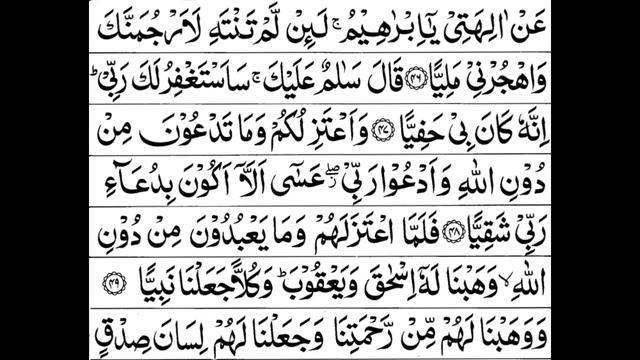 عَنْ اٰلِهَتِیْ یٰۤاِبْرٰهِیْمُ ۚ لَىِٕنْ لَّمْ تَنْتَهِ لَاَرْجُمَنَّكَ
وَاهْجُرْنِیْ مَلِیًّا ﴿۴۶﴾ قَالَ سَلٰمٌ عَلَیْكَ ۚ سَاَسْتَغْفِرُ لَكَ رَبِّیْ ؕ
اِنَّهٗ كَانَ بِیْ حَفِیًّا ﴿۴۷﴾ وَاَعْتَزِلُكُمْ وَمَا تَدْعُوْنَ مِنْ
دُوْنِ اللّٰهِ وَاَدْعُوْا رَبِّیْ ۖ٘ عَسٰۤی اَلَّاۤ اَكُوْنَ بِدُعَآءِ
رَبِّیْ شَقِیًّا ﴿۴۸﴾ فَلَمَّا اعْتَزَلَهُمْ وَمَا یَعْبُدُوْنَ مِنْ دُوْنِ
اللّٰهِ ۙ وَهَبْنَا لَهٗۤ اِسْحٰقَ وَیَعْقُوْبَ ؕ وَكُلًّا جَعَلْنَا نَبِیًّا ﴿۴۹﴾
وَوَهَبْنَا لَهُمْ مِّنْ رَّحْمَتِنَا وَجَعَلْنَا لَهُمْ لِسَانَ صِدْقٍ